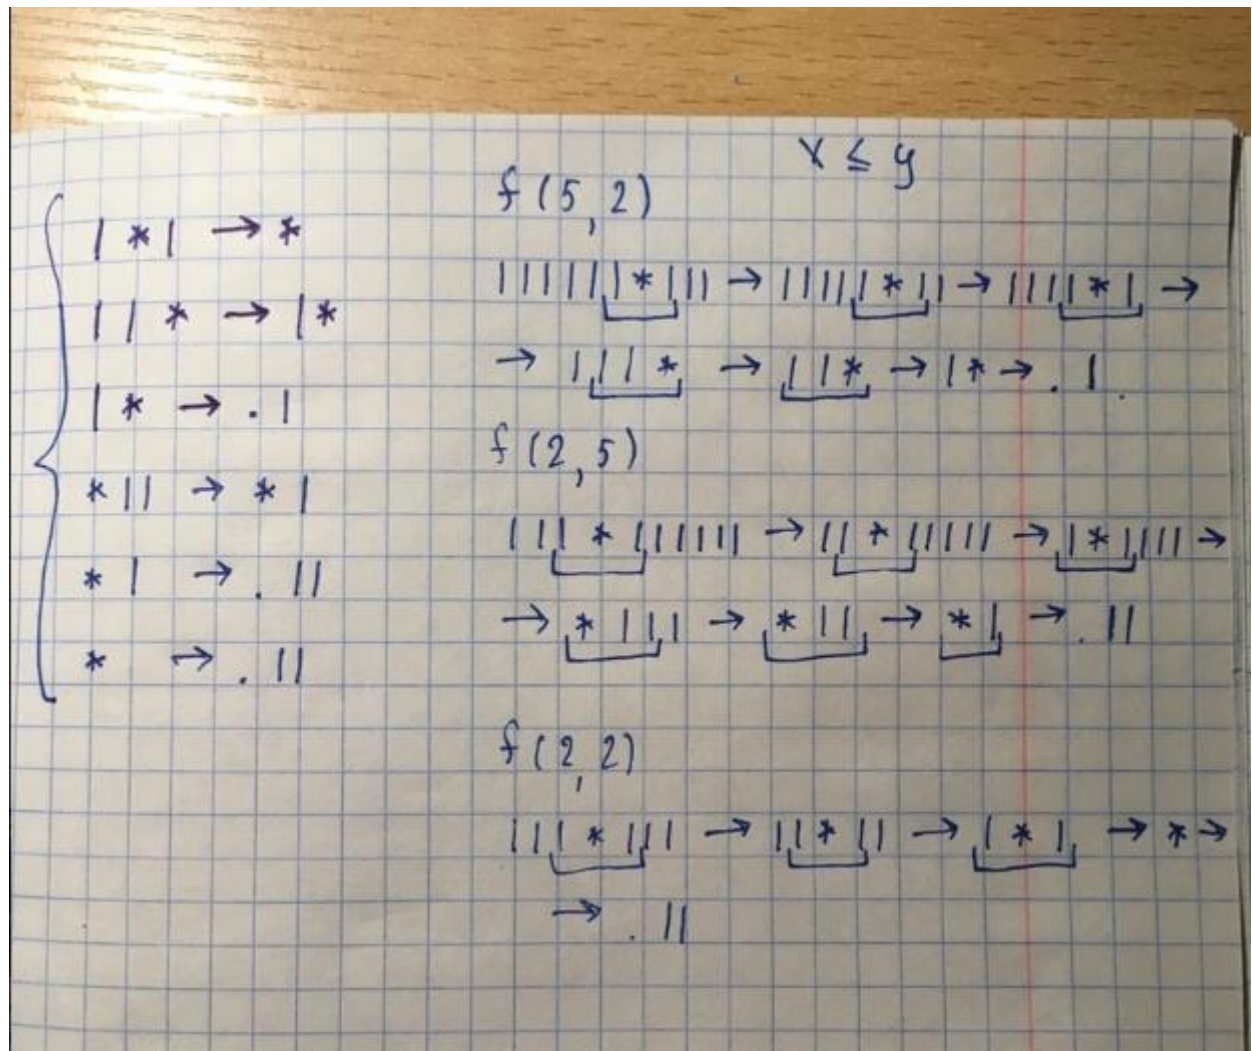 x ≤ y
| * | → *
| | * → | *
| * → . |
* | | → * |
* | → . | |
* → . | |
f (5, 2)
| | | | | | * | | | → | | | | | * | | → | | | | * | →
→ | | | | * → | | | * → | * → . |
f (2, 5)
| | | * | | | | | | → | | * | | | | | → | * | | | | →
→ * | | | | → * | | | → * | → . | |
f (2, 2)
| | | * | | | → | | * | | → | * | → * →
→ . | |